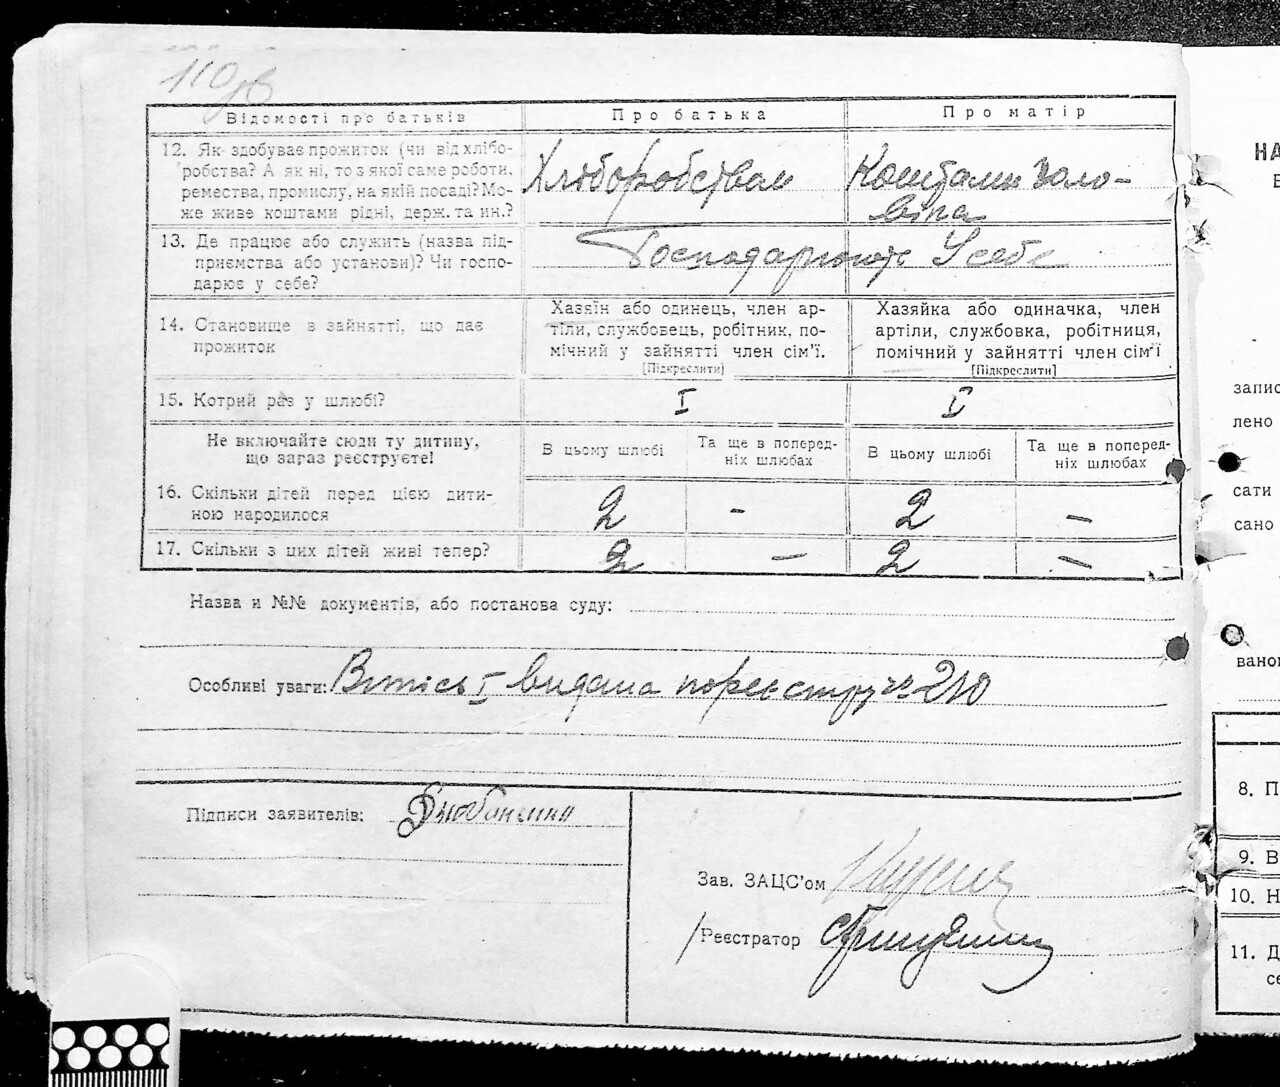 110зв
Відомості про батьків
Про батька
Про матір
12. Як здобуває прожиток (чи від хлібо-
робства? А як ні, то з якої саме роботи,
ремества, промислу, на якій посаді? Мо-
же живе коштами рідні, держ. та ин.?
Хліборобством
Коштами чоло-
віка
13. Де працює або служить (назва під-
приємства або установи)? Чи госпо-
дарює у себе?
Господарюють У себе
14. Становище в зайнятті, що дає
прожиток
Хазяїн або одинець, член ар-
тіли, службовець, робітник, по-
мічний у зайнятті член сім'ї.
[Підкреслити]
Хазяйка або одиначка, член
артіли, службовка, робітниця,
помічний у зайнятті член сім'ї
[Підкреслити]
15. Котрий раз у шлюбі?
I
I
Не включайте сюди ту дитину,
що зараз реєструєте!
В цьому шлюбі
Та ще в поперед-
ніх шлюбах
В цьому шлюбі
Та ще в поперед-
ніх шлюбах
16. Скільки дітей перед цією дити-
ною народилося
2
-
2
-
17. Скільки з цих дітей живі тепер?
2
-
2
-
Назва и №№ документів, або постанова суду:
Особливі уваги: Витісь I видана по реєстру № 210
Підписи заявителів:
Зав. ЗАЦС'ом
Реєстратор
НА
запис
лено
сати
сано
ванон
8. П
9. В
10. Н
11. Д
се